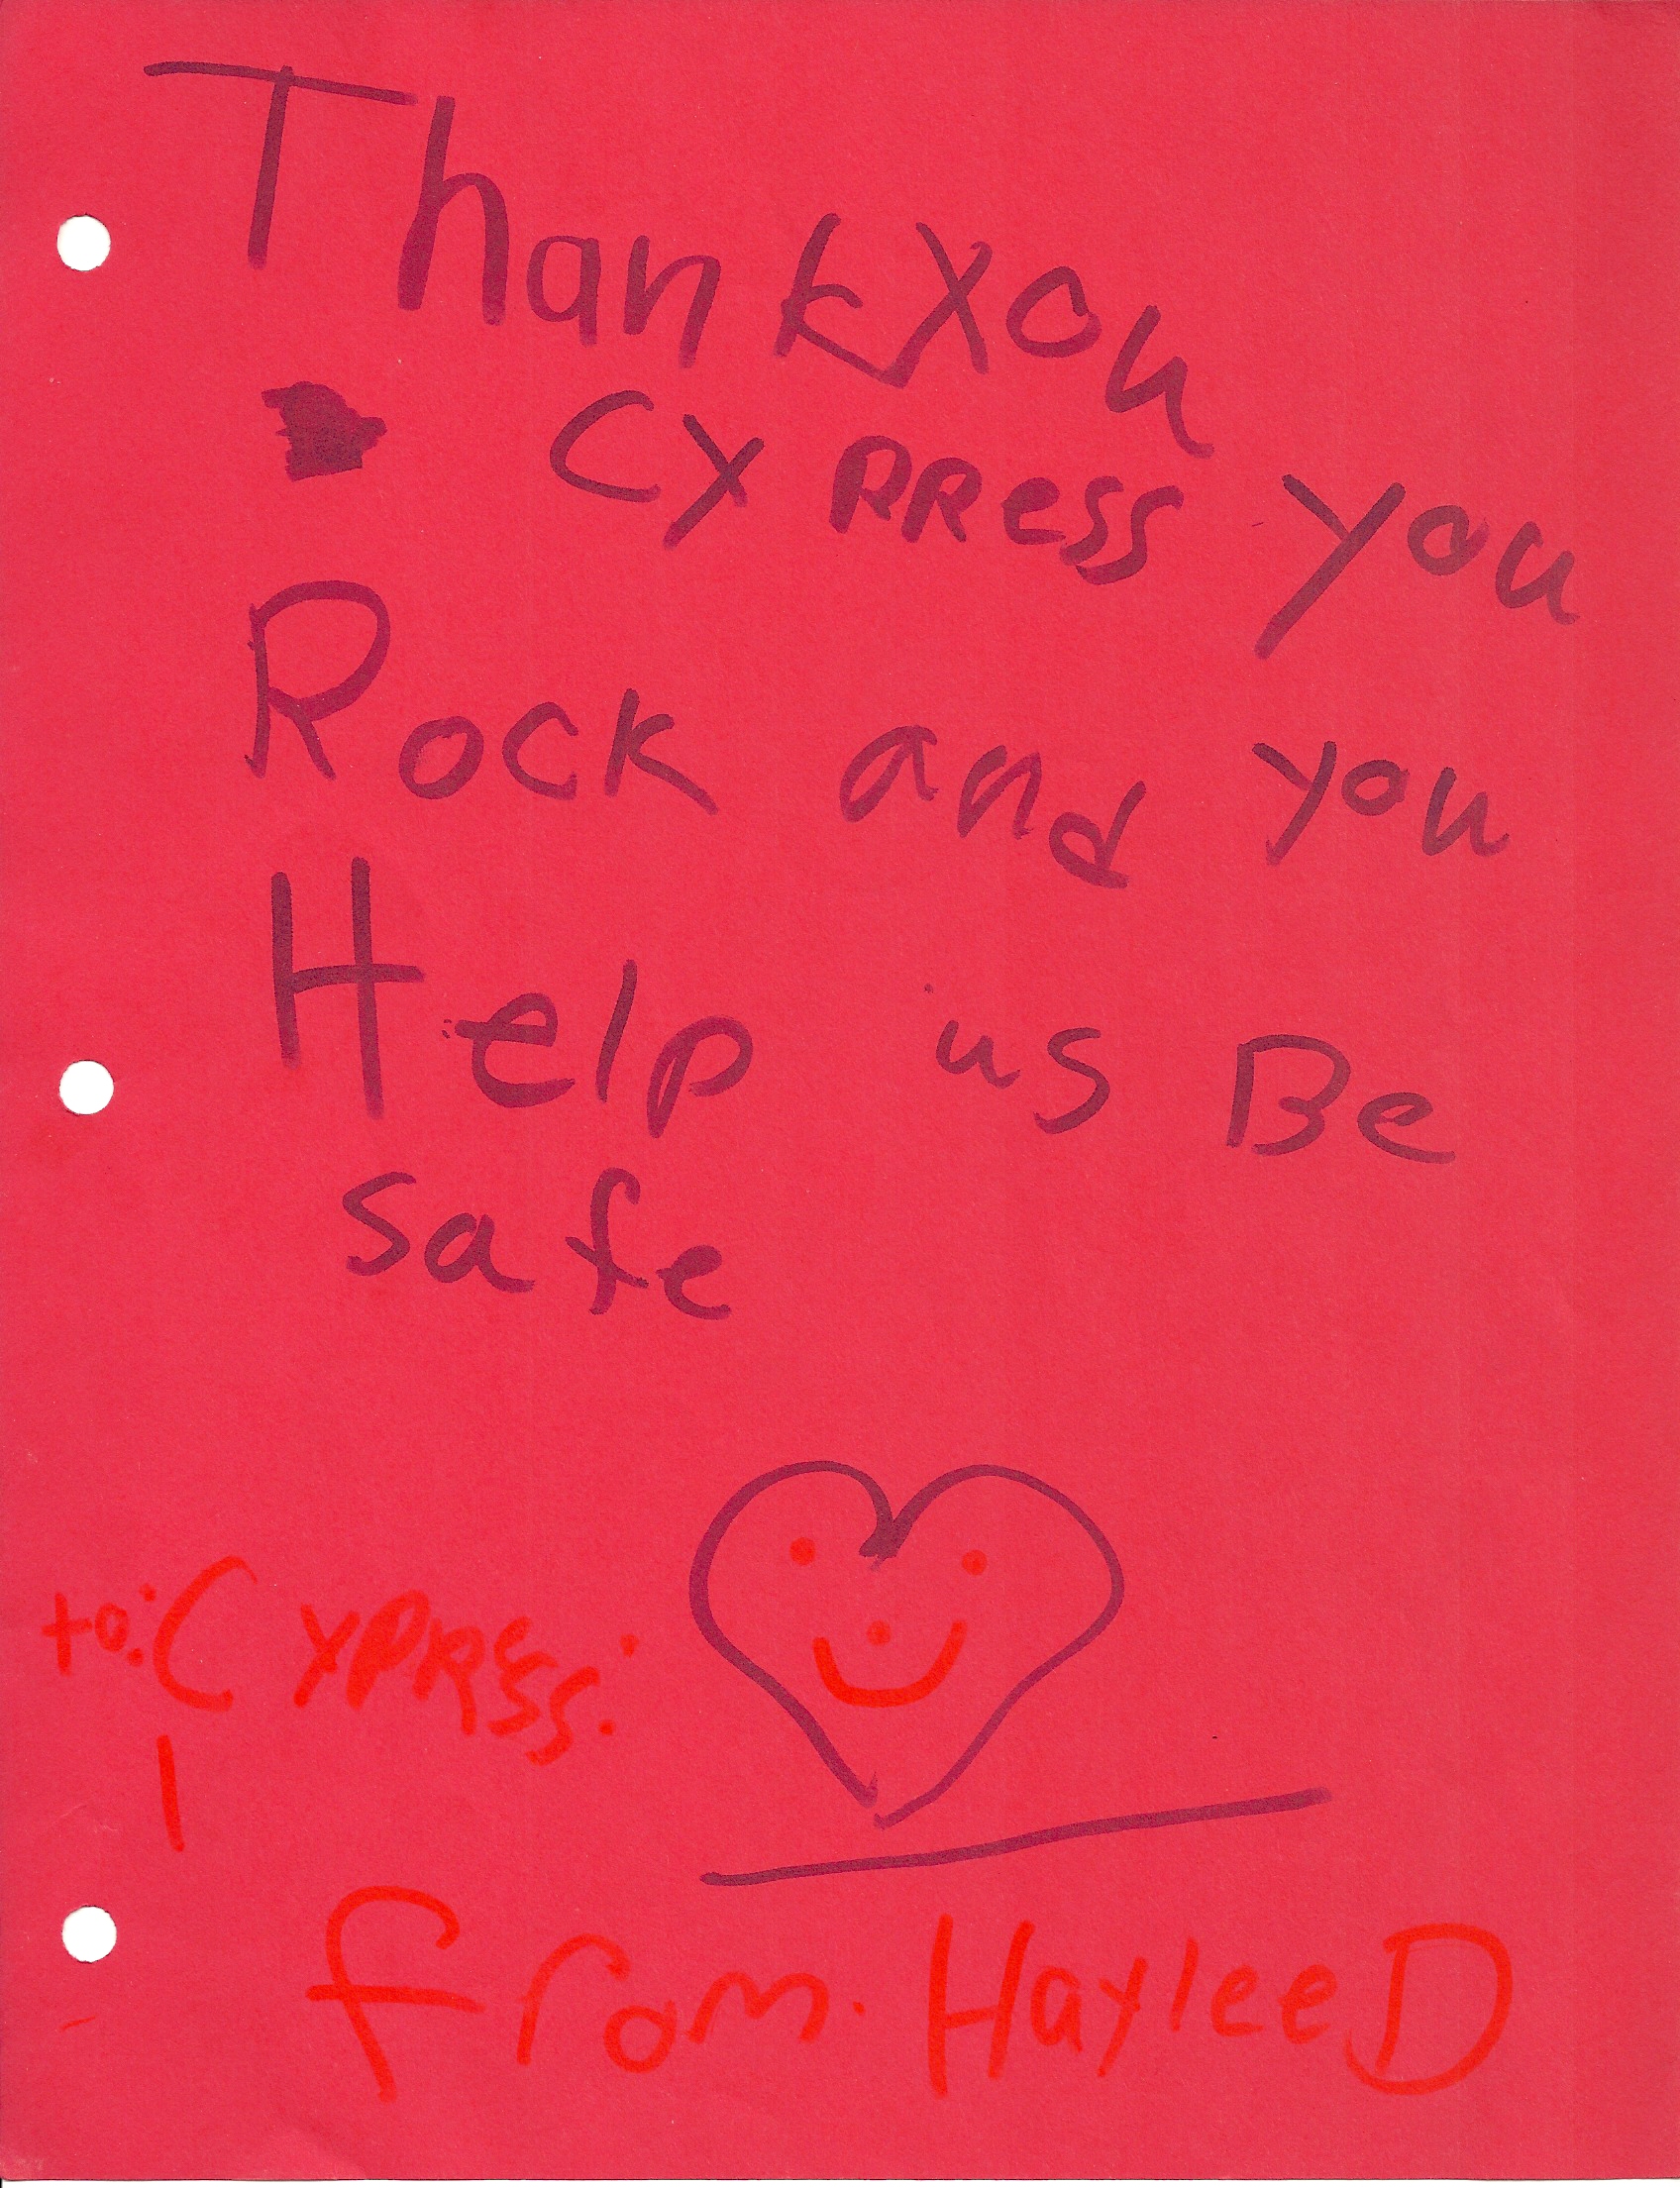 Thank You
CYPRess you
Rock and you
Help us Be
safe
to: CYPRESS:
from: Haylee D